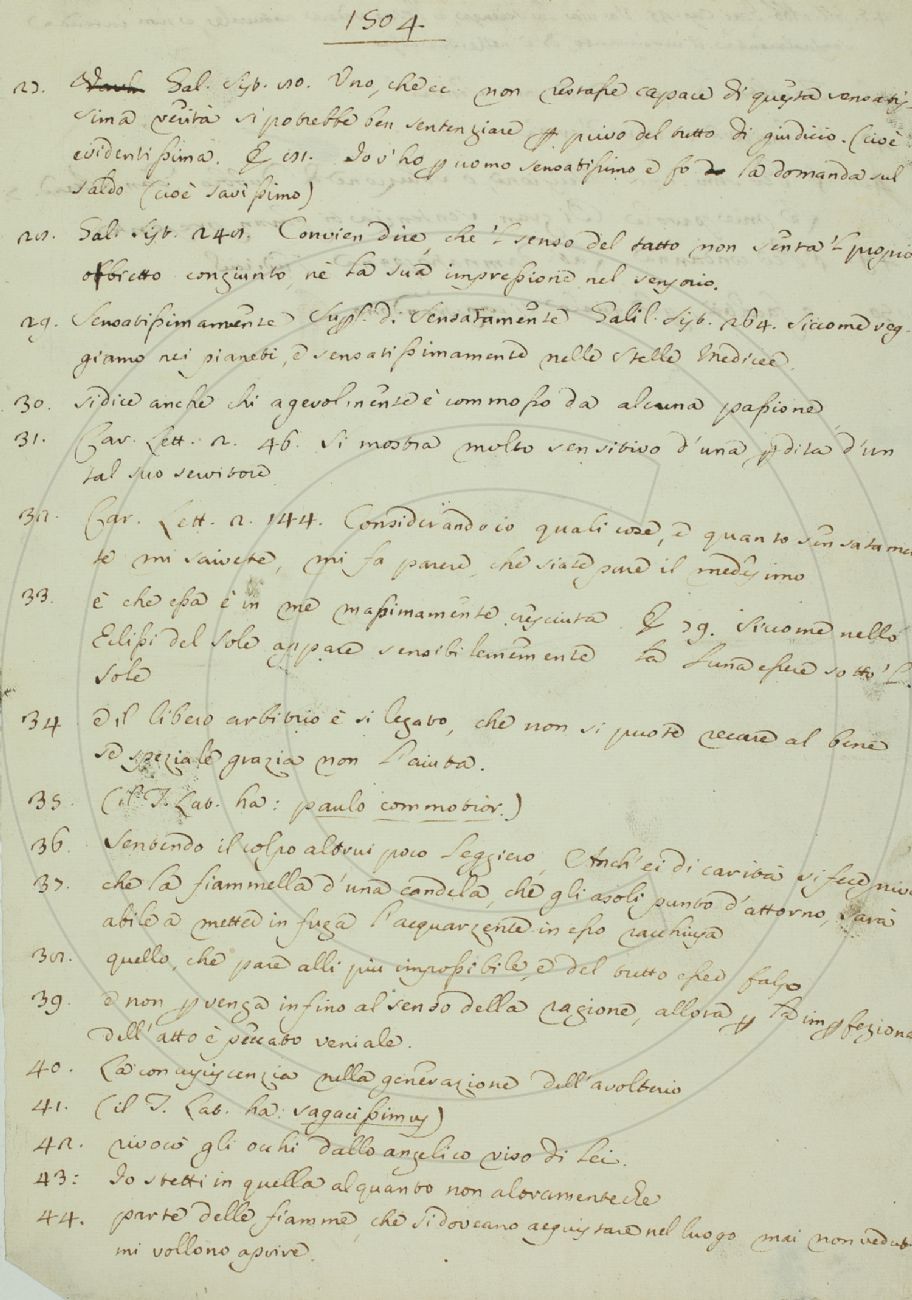 1504.
27. Gal. Sist. 80. Uno, che ec. non restasse capace di questa sensatis
sima verità si potrebbe ben sentenziare p. privo del tutto di giudicio. (cioè
evidentissima. E 81. Io v'ho p uomo sensatissimo, e fo la domanda sul
saldo (cioè savissimo)
28. Gal. Sist. 248. Convien dire, che 'l senso del tatto non senta 'l proprio
obbietto congiunto, nè la sua impressione nel sensorio.
29. Sensatissimamente Supl. di Sensatamente Galil. Sist. 264. siccome veg-
giamo nei pianeti, e sensatissimamente nelle stelle Medicee.
30. si dice anche chi agevolmente è commosso da alcuna passione
31. Car. Lett. 2. 46. Si mostra molto sensitivo d'una pdita d'un
tal suo servitore
32. Car. Lett. 2. 144. Considerando io quali cose, e quanto sensatamen
te mi scrivete, mi fa parere, che siate pure il medesimo
33. è che essa è in me massimamente cresciuta. E 79. siccome nello
Eclissi del Sole appare sensibilemente la Luna essere sotto 'l
Sole
34. e il libero arbitrio è sì legato, che non si puote recare al bene
se speziale grazia non l'aiuta.
35. (il T. Lat. ha: paulo commotior.)
36. Sentendo il colpo altrui poco leggiero, Anch' ei di carità si fece privo
37. che la fiammella d'una candela, che gli asoli punto d'attorno, sarà
abile a metter in fuga l'acquarzente in esso racchiusa
38. quello, che pare alli più impossibile, e del tutto esser falso
39. e non pvenga infino al senso della ragione, allora p la impfezione
dell' atto è peccato veniale.
40. La concupiscenzia nella generazione dell' avolterio
41. (il T. Lat. ha: sagacissimus)
42. rivocò gli occhi dallo angelico viso di lei.
43: Io stetti in quella alquanto non altramente che
44. parte delle fiamme, che si doveano acquistare nel luogo mai non veduto
mi vollono aprire.